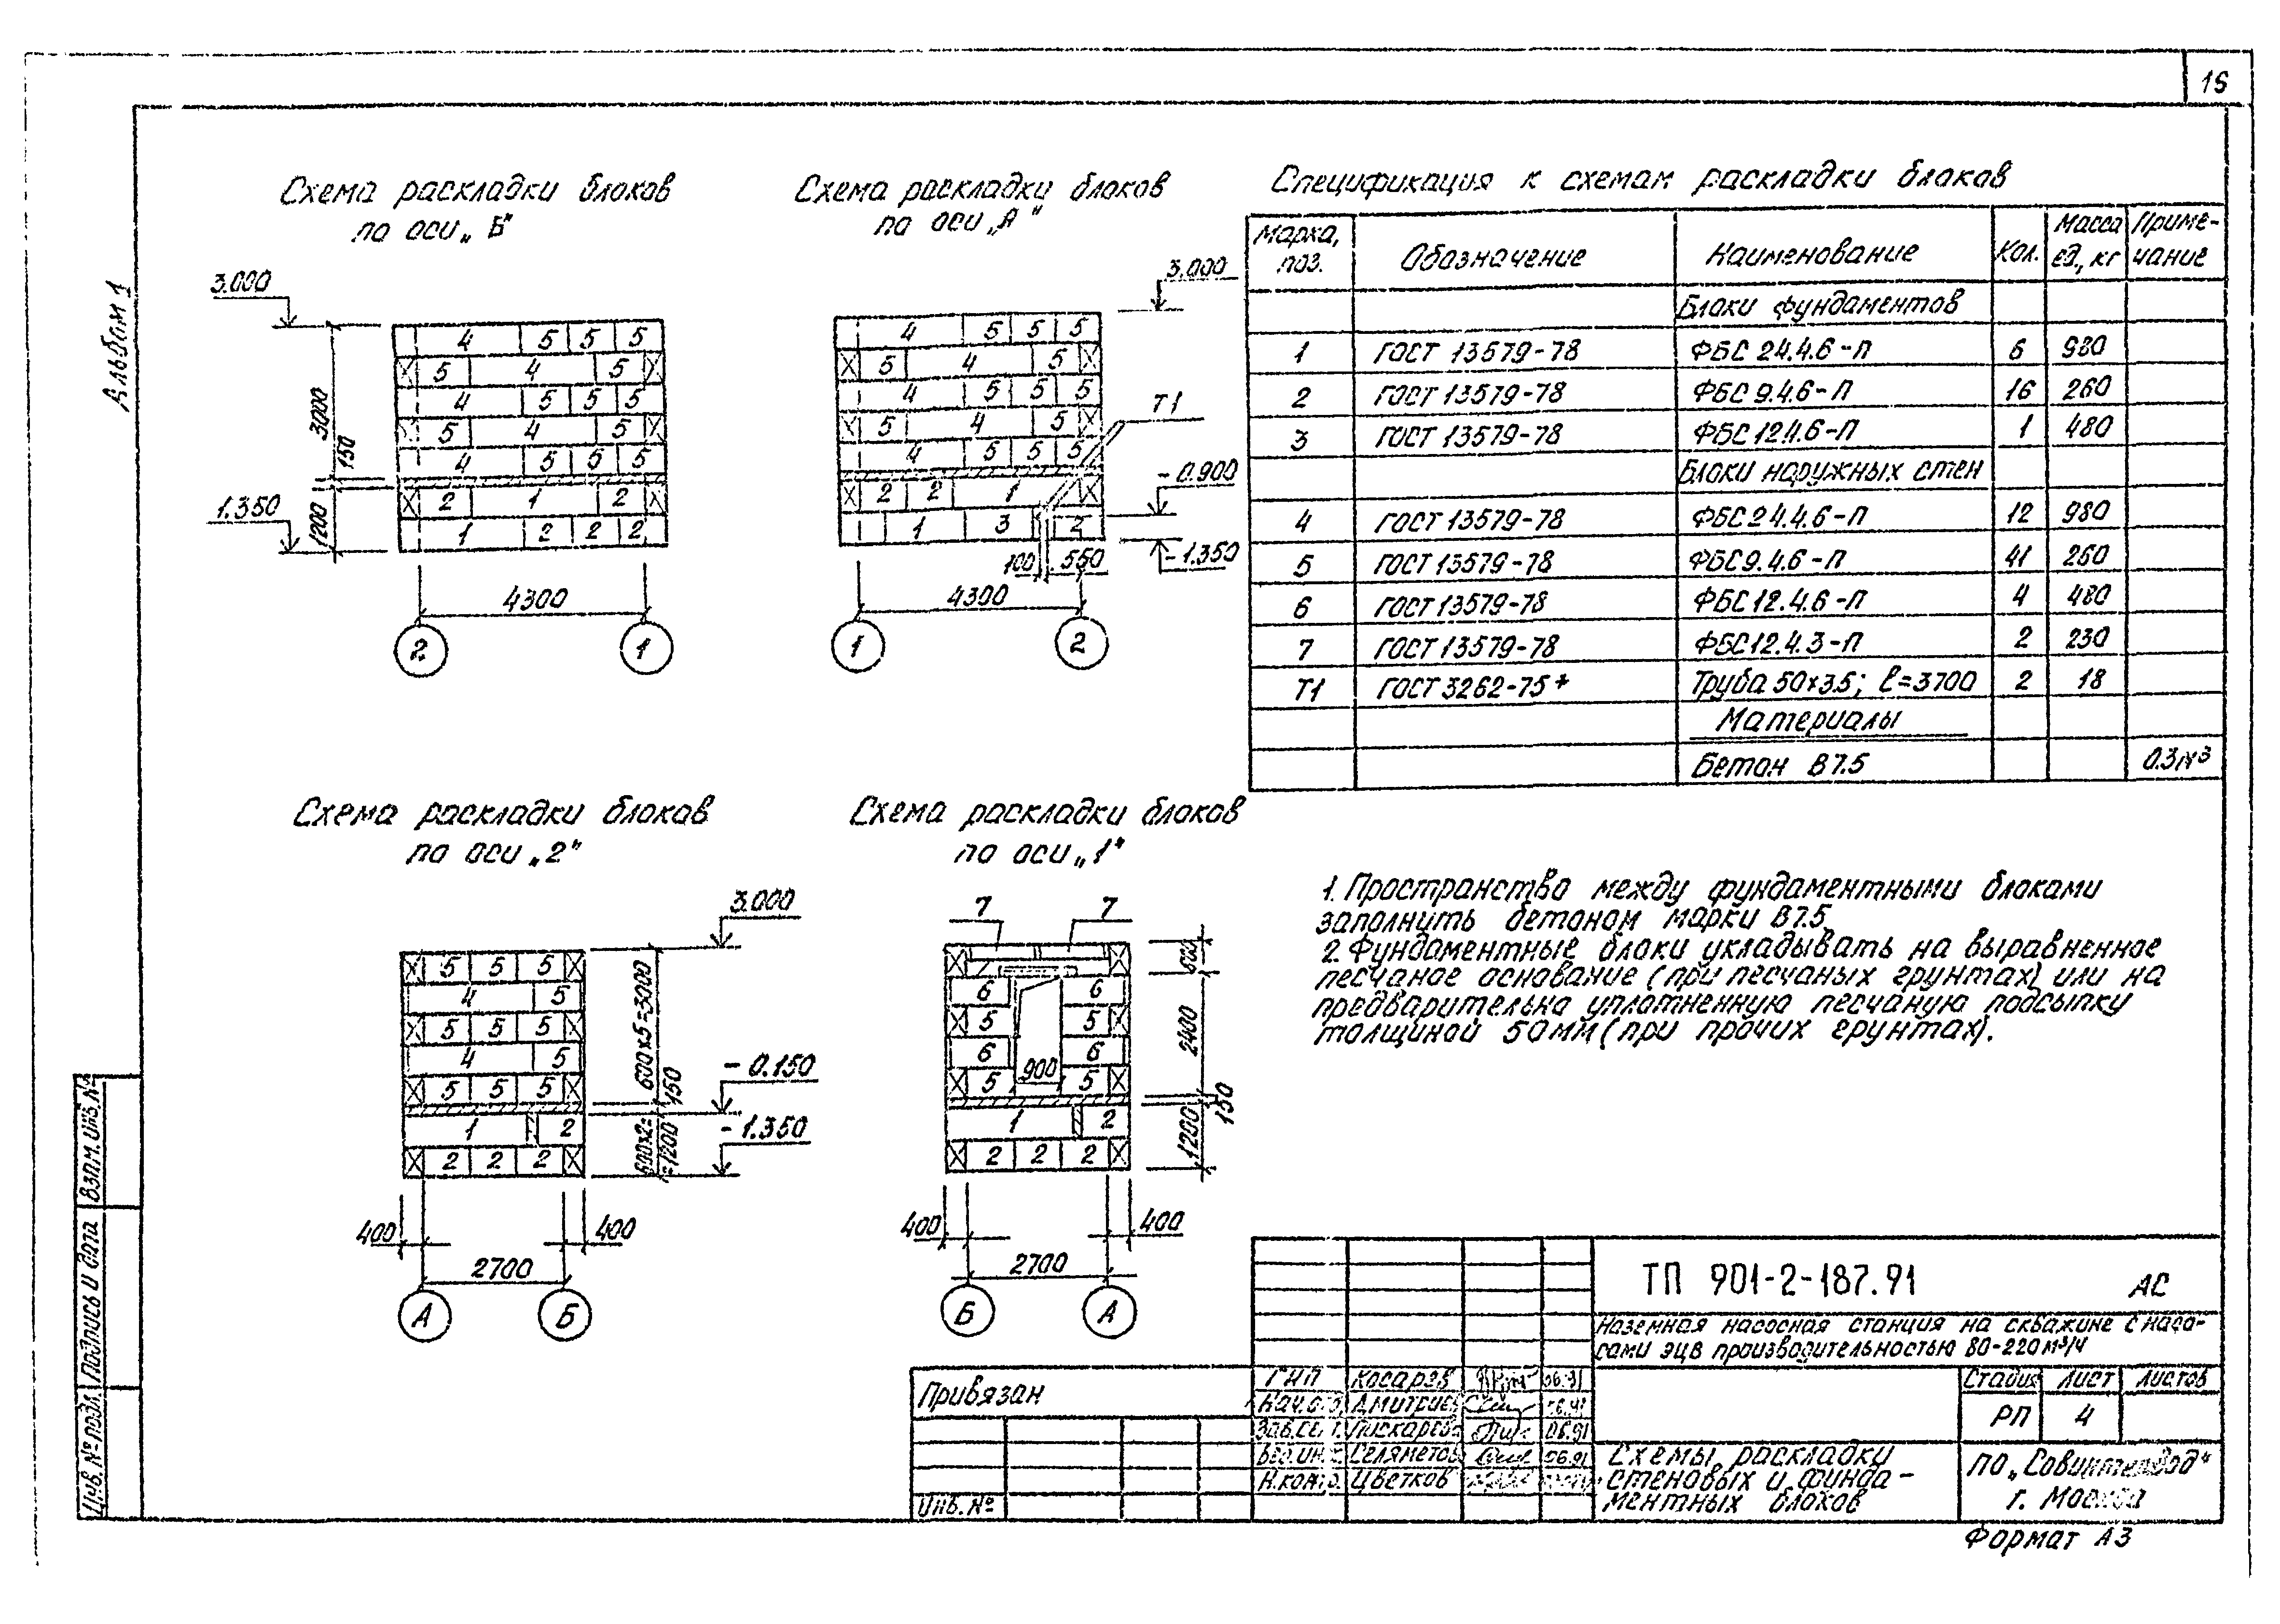 16
Альбом 1
Схема раскладки блоков
по оси „Б"
3.000
4 5 5 5
5 4 5
4 5 5 5
5 4 5
4 5 5 5
2 1 2
1 2 2 2
3000
150
1200
1.350
4300
2 1
Схема раскладки блоков
по оси „А"
3.000
4 5 5 5
5 4 5
4 5 5 5
5 4 5
4 5 5 5
2 2 1
1 3 2
Т1
- 0.900
- 1.350
100 550
4300
1 2
Спецификация к схемам раскладки блоков
Марка, поз. Обозначение Наименование Кол. Масса ед., кг Приме-чание
Блоки фундаментов
1 ГОСТ 13579-78 ФБС 24.4.6-П 6 980
2 ГОСТ 13579-78 ФБС 9.4.6-П 16 260
3 ГОСТ 13579-78 ФБС 12.4.6-П 1 480
Блоки наружных стен
4 ГОСТ 13579-78 ФБС 24.4.6-П 12 980
5 ГОСТ 13579-78 ФБС 9.4.6-П 41 260
6 ГОСТ 13579-78 ФБС 12.4.6-П 4 480
7 ГОСТ 13579-78 ФБС 12.4.3-П 2 230
Т1 ГОСТ 3262-75* Труба 50х3.5; ℓ=3700 2 18
Материалы
Бетон В7.5 0.3м³
Схема раскладки блоков
по оси „2"
3.000
5 5 5
4 5
5 5 5
4 5
5 5 5
1 2
2 2 2
600х5=3000
150
600х2=
=1200
- 0.150
- 1.350
400 400
2700
А Б
Схема раскладки блоков
по оси „1"
7 7
6 6
5 5
6 6
5 5
900
1 2
2 2 2
600
2400
150
1200
400 400
2700
Б А
1. Пространство между фундаментными блоками
заполнить бетоном марки В7.5.
2. Фундаментные блоки укладывать на выравненное
песчаное основание (при песчаных грунтах) или на
предварительно уплотненную песчаную подсыпку
толщиной 50мм (при прочих грунтах).
Взам. инв. №
Подпись и дата
Инв. № подл.
ТП 901-2-187.91 АС
Наземная насосная станция на скважине с насо-
сами ЭЦВ производительностью 80-220м³/ч
Привязан
Инв. №
ГИП Косарев 06.91
Дмитриев 06.91
Пискарев 06.91
Селяметов 06.91
Н.контр. Цветков
Стадия Лист Листов
РП 4
Схемы раскладки
стеновых и фунда-
ментных блоков
ПО „Совинтервод"
г. Москва
Формат А3